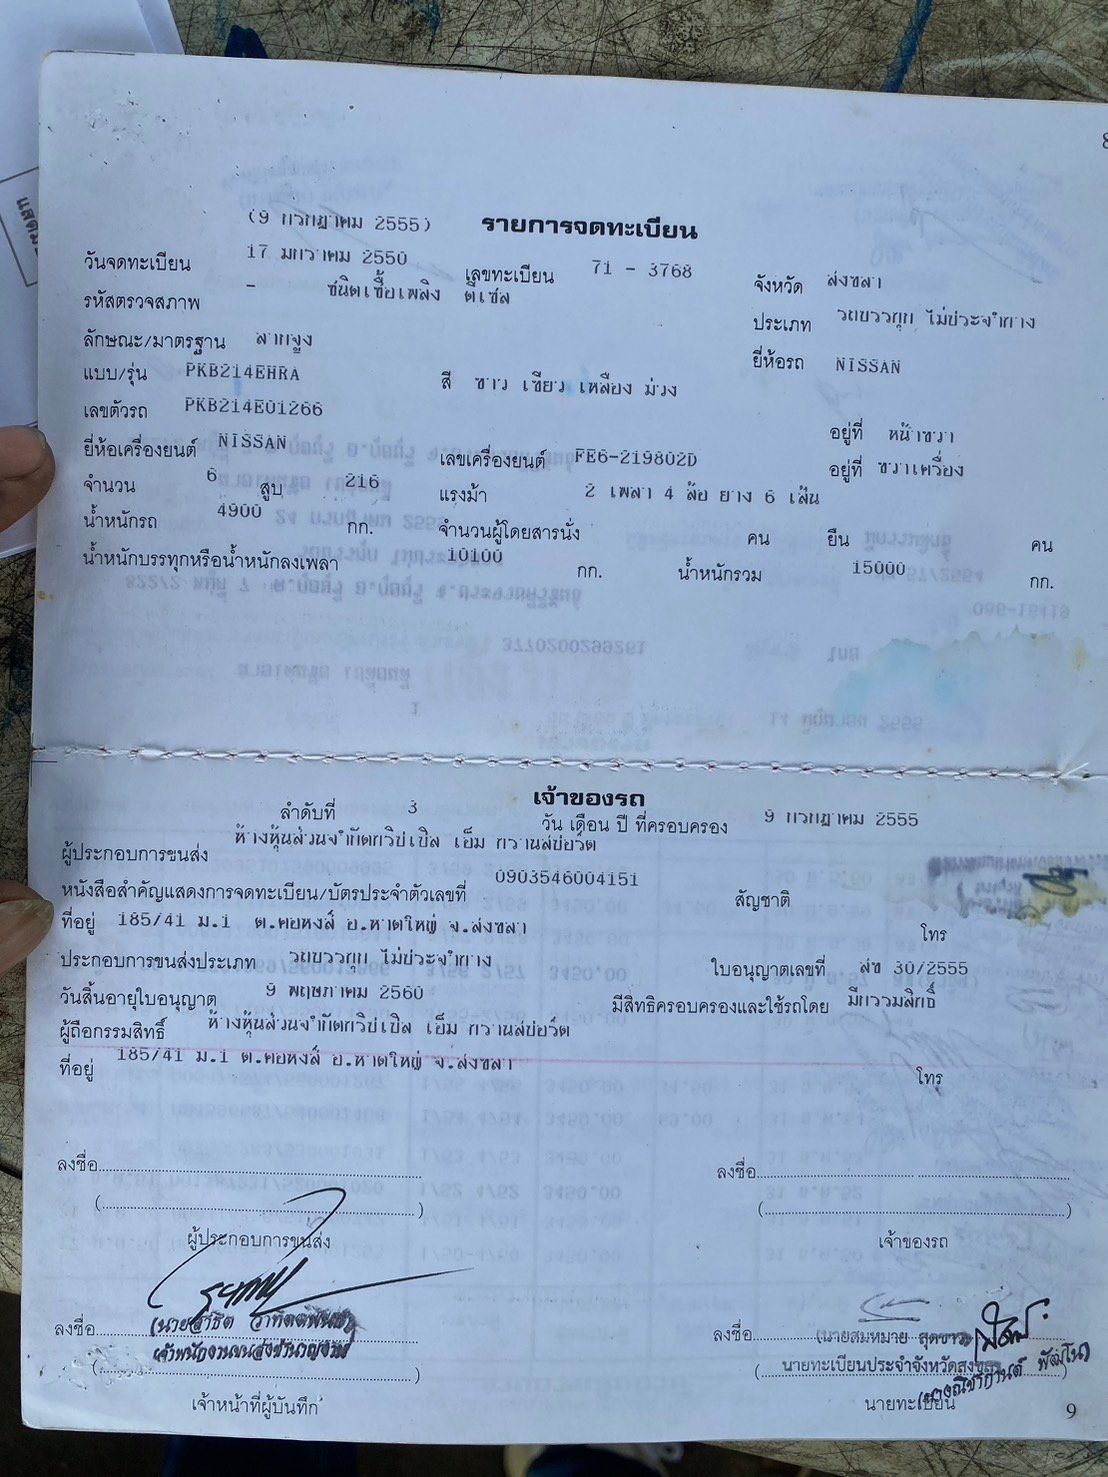 8
(9 กรกฎาคม 2555) รายการจดทะเบียน
วันจดทะเบียน 17 มกราคม 2550 เลขทะเบียน 71 - 3768 จังหวัด สงขลา
รหัสตรวจสภาพ - ชนิดเชื้อเพลิง ดีเซล ประเภท รถบรรทุก ไม่ประจำทาง
ลักษณะ/มาตรฐาน ลากจูง ยี่ห้อรถ NISSAN
แบบ/รุ่น PKB214EHRA สี ขาว เขียว เหลือง ม่วง
เลขตัวรถ PKB214E01266 อยู่ที่ หน้าขวา
ยี่ห้อเครื่องยนต์ NISSAN เลขเครื่องยนต์ FE6-219802D อยู่ที่ ขวาเครื่อง
จำนวน 6 สูบ 216 แรงม้า 2 เพลา 4 ล้อ ยาง 6 เส้น
น้ำหนักรถ 4900 กก. จำนวนผู้โดยสารนั่ง คน ยืน คน
น้ำหนักบรรทุกหรือน้ำหนักลงเพลา 10100 กก. น้ำหนักรวม 15000 กก.
เจ้าของรถ
ลำดับที่ 3 วัน เดือน ปี ที่ครอบครอง 9 กรกฎาคม 2555
ผู้ประกอบการขนส่ง ห้างหุ้นส่วนจำกัด เอ็ม ทรานสปอร์ต
หนังสือสำคัญแสดงการจดทะเบียน/บัตรประจำตัวเลขที่ 0903546004151 สัญชาติ
ที่อยู่ 185/41 ม.1 ต.คอหงส์ อ.หาดใหญ่ จ.สงขลา โทร
ประกอบการขนส่งประเภท รถบรรทุก ไม่ประจำทาง ใบอนุญาตเลขที่ สข 30/2555
วันสิ้นอายุใบอนุญาต 9 พฤษภาคม 2560 มีสิทธิครอบครองและใช้รถโดย มีกรรมสิทธิ์
ผู้ถือกรรมสิทธิ์ ห้างหุ้นส่วนจำกัด เอ็ม ทรานสปอร์ต
ที่อยู่ 185/41 ม.1 ต.คอหงส์ อ.หาดใหญ่ จ.สงขลา โทร
ลงชื่อ ลงชื่อ
( ) ( )
ผู้ประกอบการขนส่ง เจ้าของรถ
ลงชื่อ (นายสาธิต ลงชื่อ (นายสมหมาย
เจ้าพนักงานขนส่งชำนาญงาน นายทะเบียนประจำจังหวัดสงขลา
เจ้าหน้าที่ผู้บันทึก นายทะเบียน
9